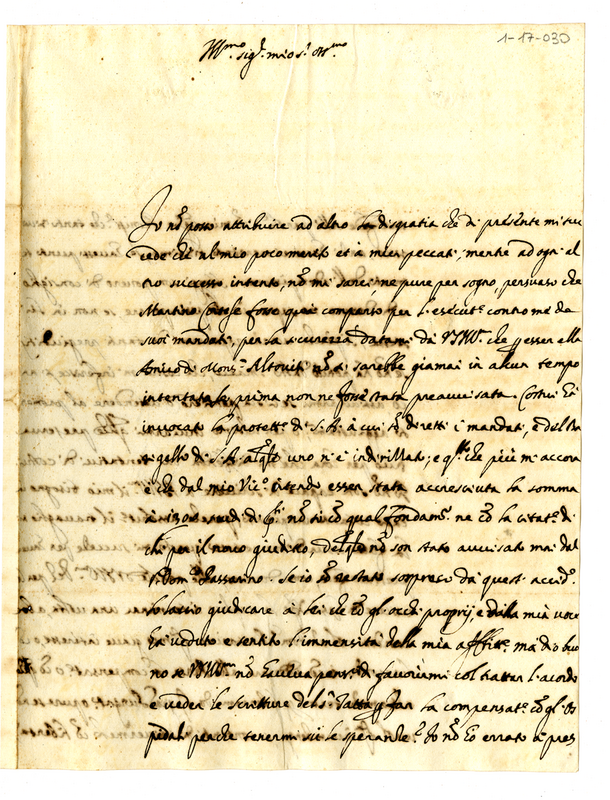 1-17-030
Ill.mo sig.r mio s.r oss.mo
Io nõ posso attribuire ad altro la disgratia che di presente mi suc
cede che al mio poco merito et à miei peccati, mentre ad ogni al
tro successo intento, nõ mi sarei, ne pure per sogno, persuaso che
Martino fosse quà comparso per l'esecut.e contro me de
suoi mandati, per la sicurezza datami da VSIll. che p essere ella
Amico di Mons.r Altoviti nõ si sarebbe giamai in alcun tempo
intentata se prima non ne fosse stata preavvisata. Costui hà
invocato la protett.e di S.A. à cui sõ diretti i mandati, e dal Ba
rigello di S.A. uno n'è indirizzato; e q.llo che più m'accora
è che dal mio Vic.o intendo esser stata accresciuta la somma
à scudi di nõ sò cõ qual fondam.o ne cõ la citat.e di
chi per il novo giuditio, del q.le nõ son stato avvisato mai dal
S. Dom.o Passarino. Se io sõ restato sorpreso da questi accid.i
lo lascio giudicare à lei che cõ gl'occhi proprij, e dalla mia voce
hà veduto e sentito l'immensità della mia afflitt.e ma dio buo
no se VSIll.ma nõ favorirmi col trattar l'acordo
e veder le scritture del S. e far la compensat.e cõ gl'Os
pedali perche tenermi sù le speranze? Io nõ hò errato à pres